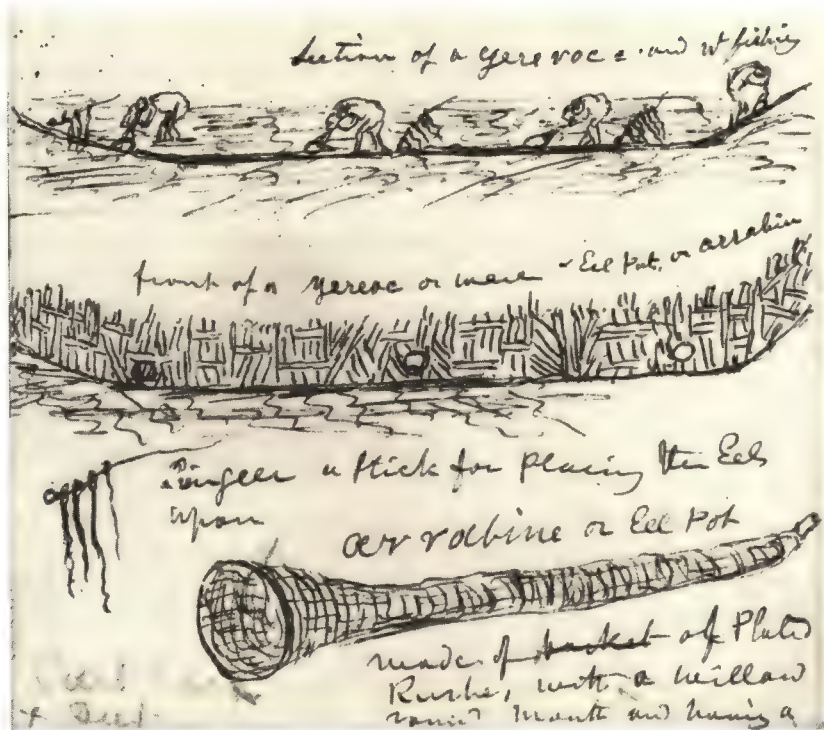 Section of a yereroc - and N fishing
front of a yereroc or weir - Eel Pot, or arrabine
a Stick for Placing the Eels
upon
arrabine or Eel Pot
made of basket of Plated
Rushe, with a willow
round mouth and having a